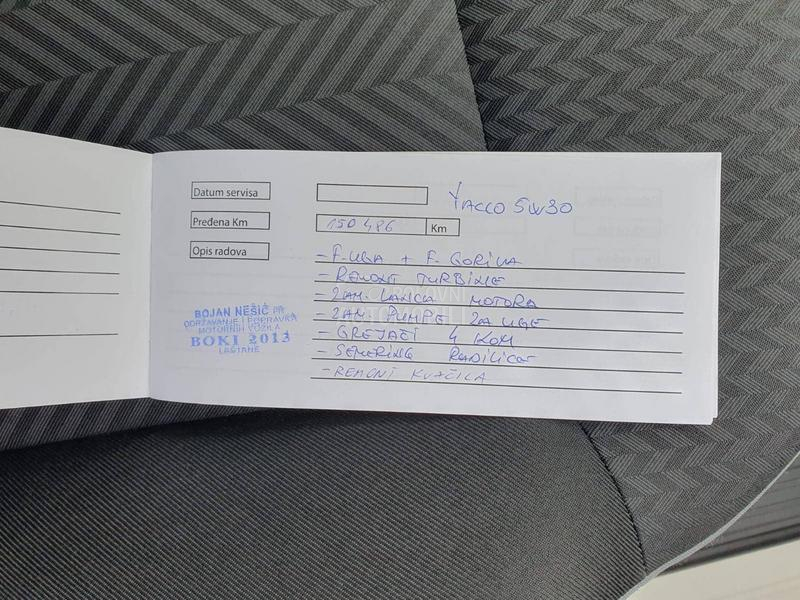 Datum servisa
YACCO 5W30
Pređena Km 150 486 Km
Opis radova
- F. ULJA + F. GORIVA
- REMONT TURBINE
- ZAM. LANCA MOTORA
- ZAM PUMPE ZA ULJE
- GREJAČI 4 KOM
- SEMERING RADILICE
- REMONT KVAČILA
BOJAN NEŠIĆ PR
ODRŽAVANJE I POPRAVKA
MOTORNIH VOZILA
BOKI 2013
LEŠTANE